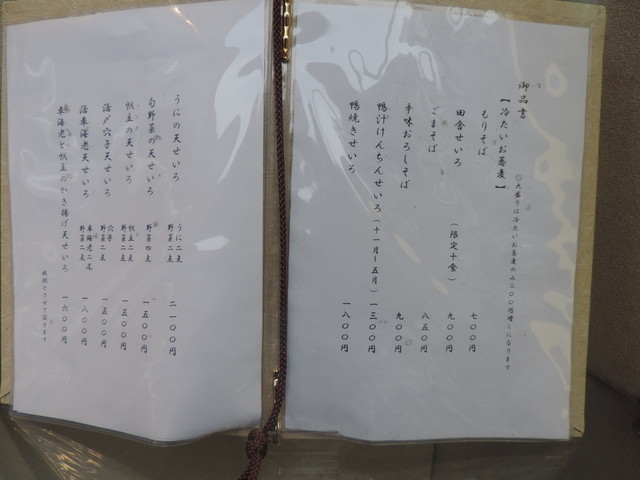 御品書
【冷たいお蕎麦】
◎大盛りは冷たいお蕎麦のみ二〇〇円増しになります
もりそば 七〇〇円
田舎せいろ (限定十食) 九〇〇円
ごまそば 八五〇円
辛味おろしそば 九〇〇円
鴨汁けんちんせいろ(十一月〜五月) 一三〇〇円
鴨焼きせいろ 一八〇〇円
うにの天せいろ うに二点 野菜二点 二一〇〇円
旬野菜の天せいろ 野菜四点 一五〇〇円
帆立の天せいろ 帆立二点 野菜二点 一五〇〇円
活〆穴子天せいろ 穴子 野菜二点 一五〇〇円
活車海老天せいろ 車海老二尾 野菜二点 一八〇〇円
車海老と帆立のかき揚げ天せいろ 一六〇〇円
税別とさせて頂きます